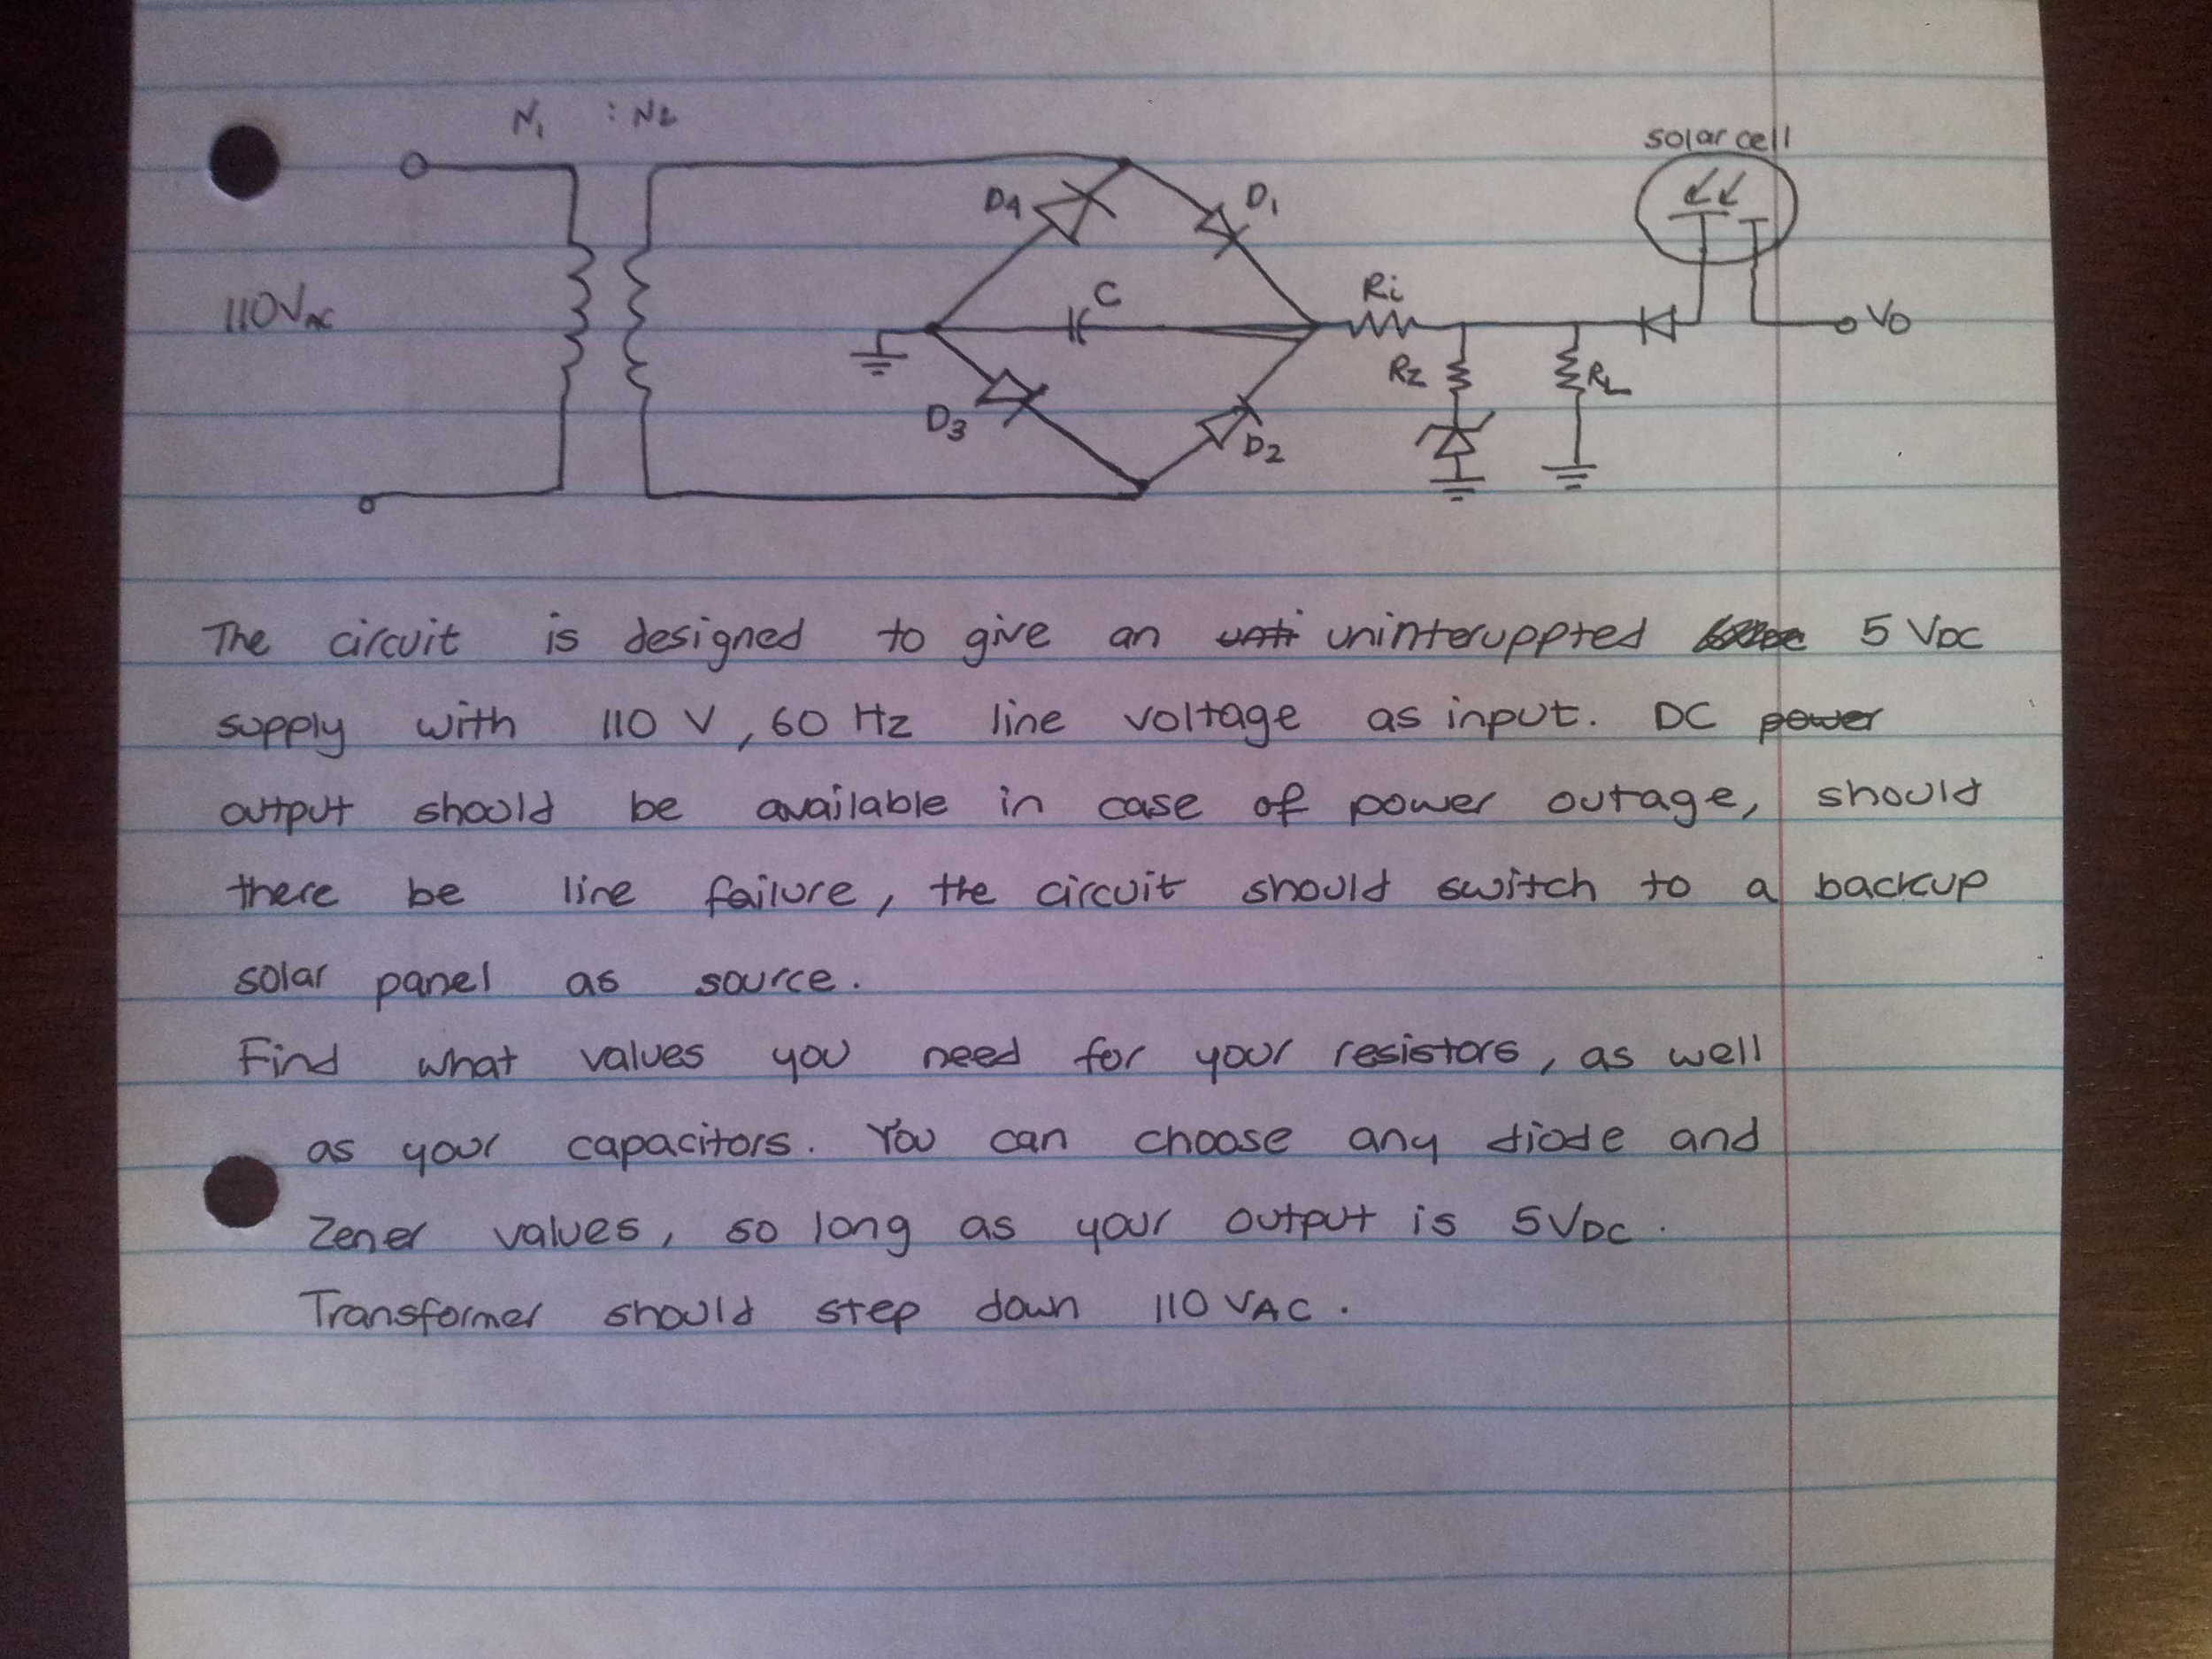 N1 : N2
solar cell
D4
D1
110VAC
C
Ri
Vo
Rz
RL
D3
D2
The circuit is designed to give an uninteruppted 5 VDC
supply with 110 V, 60 Hz line voltage as input. DC power
output should be available in case of power outage, should
there be line failure, the circuit should switch to a backup
solar panel as source.
Find what values you need for your resistors, as well
as your capacitors. You can choose any diode and
Zener values, so long as your output is 5VDC.
Transformer should step down 110 VAC.